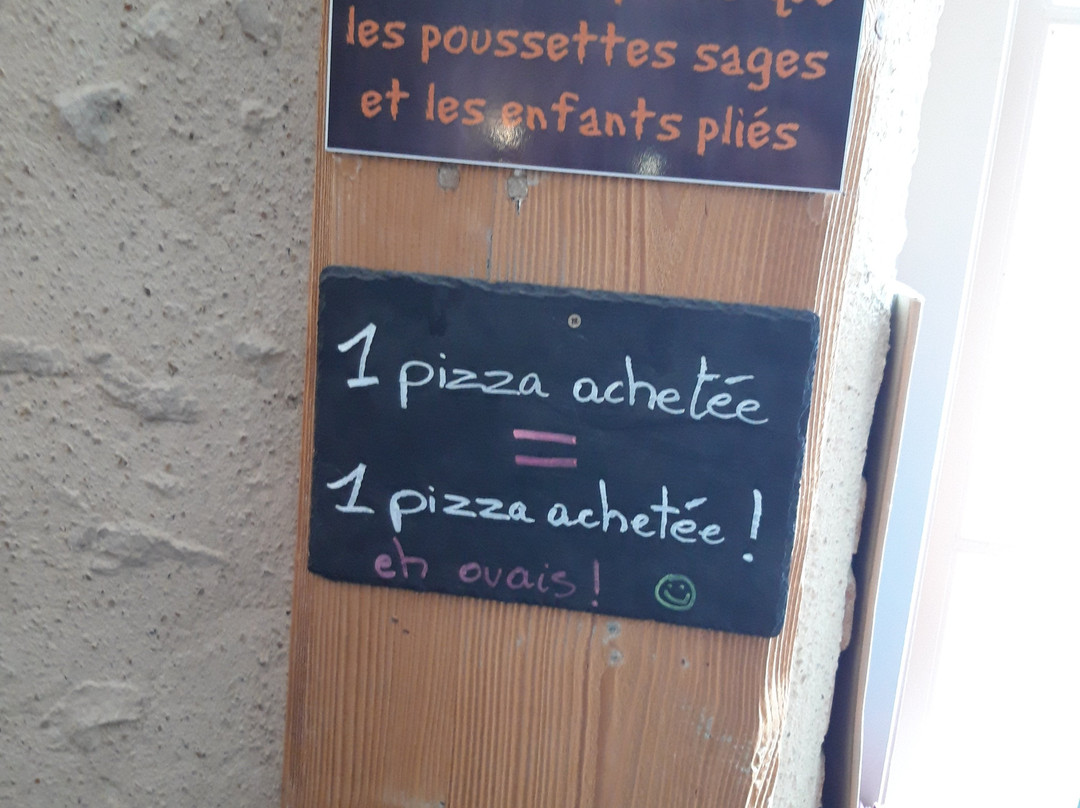 les poussettes sages
et les enfants pliés
1 pizza achetée
=
1 pizza achetée !
eh ouais !